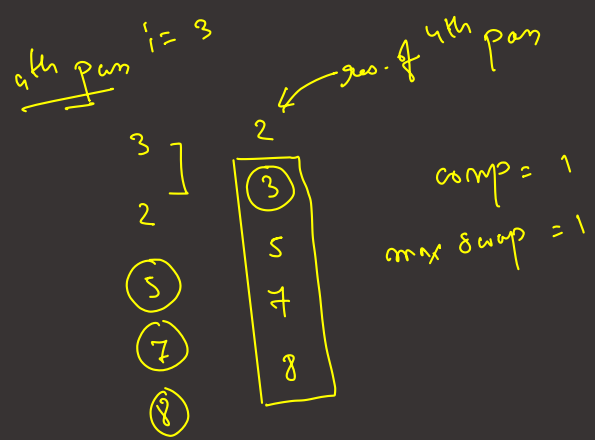 4th pass i = 3
res. of 4th pass
3
2
5
7
8
2
3
5
7
8
comp = 1
max swap = 1